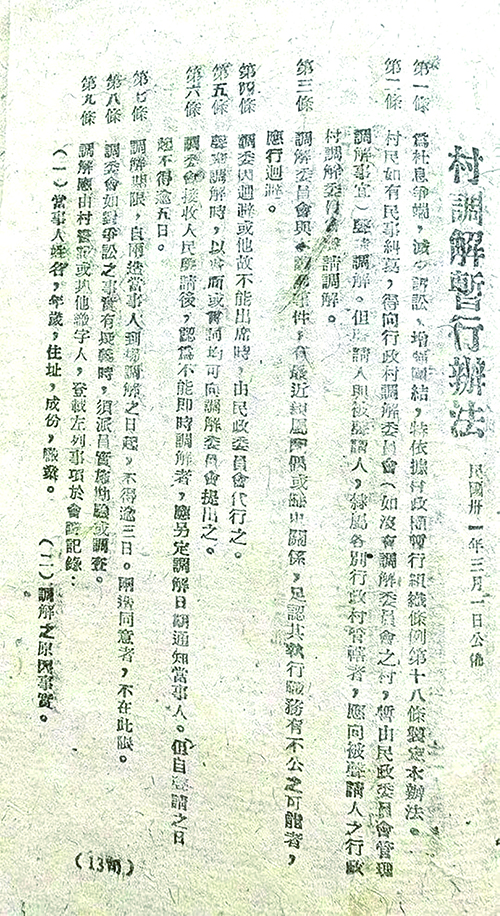 村調解暫行辦法
民國卅一年三月一日公佈
第一條　為杜息爭端，減少訴訟，增強團結，特依據村政權暫行組織條例第十八條製定本辦法。
第二條　村民如有民事糾葛，得向行政村調解委員會（如沒會調解委員會之村，暫由民政委員會管理
調解事宜）聲請調解。但聲請人與被聲請人，隸屬各別行政村管轄者，應向被聲請人之行政
村調解委員會聲請調解。
第三條　調解委員會與事件，有最近親屬配偶或關係，足認其執行職務有不公之可能者，
應行迴避。
第四條　調委因迴避或他故不能出席時，由民政委員會代行之。
第五條　聲請調解時，以書面或言詞均可向調解委員會提出之。
第六條　調委會接收人民聲請後，認為不能即時調解者，應另定調解日期通知當事人。但自聲請之日
起不得逾五日。
第七條　調解期限，自兩造當事人到場調解之日起，不得逾三日。兩造同意者，不在此限。
第八條　調委會如對爭訟之事實有疑義時，須派員實施勘驗或調查。
第九條　調解應由村書記或其他識字人，登載左列事項於會議記錄：
（一）當事人姓名，年歲，住址，成份，職業。　（二）調解之原因事實。